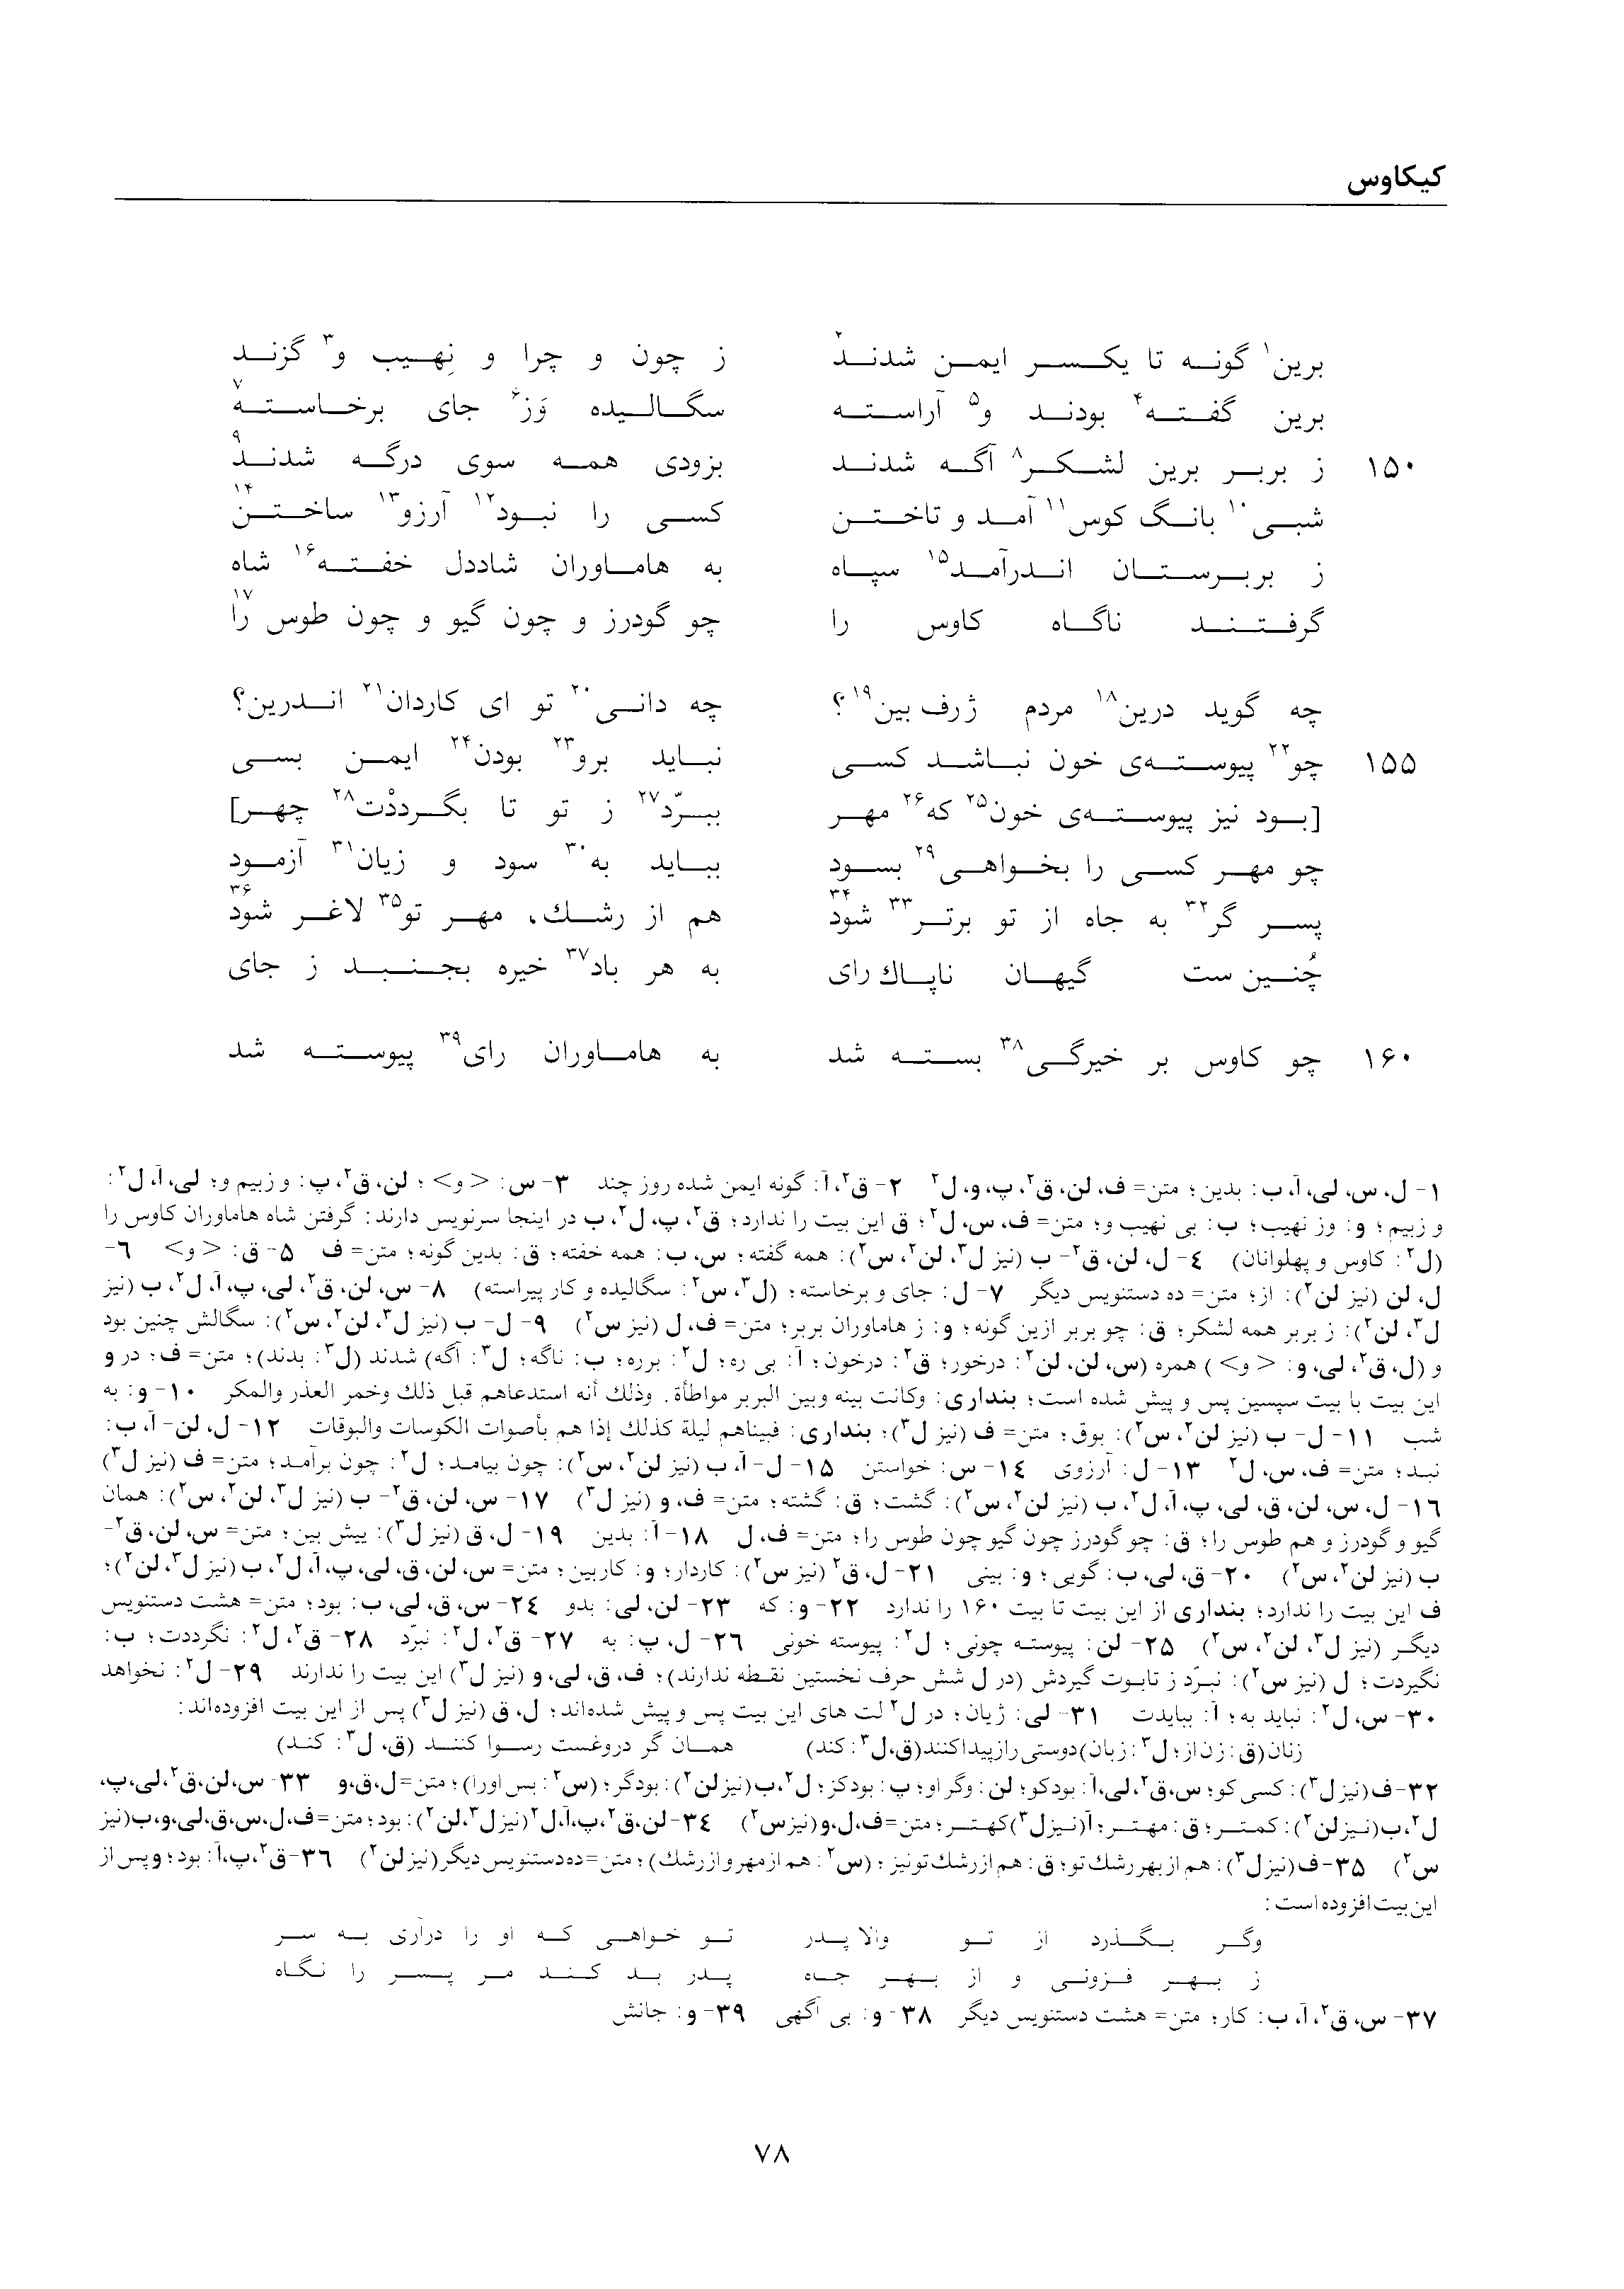 کیکاوس
برین¹ گونه تا یکسر ایمن شدند² ز چون و چرا و نِهیب و³ گزند
برین گفته⁴ بودند و⁵ آراسته سگالیده وَز⁶ جای برخاسته⁷
۱۵۰ ز بربر برین لشکر⁸ آگه شدند بزودی همه سوی درگه شدند⁹
شبی¹⁰ بانگ کوس¹¹ آمد و تاختن کسی را نبود¹² آرزو¹³ ساختن¹⁴
ز بربرستان اندرآمد¹⁵ سپاه به هاماوران شاددل خفته¹⁶ شاه
گرفتند ناگاه کاوس را چو گودرز و چون گیو و چون طوس را¹⁷
چه گوید درین¹⁸ مردم ژرف بین¹⁹؟ چه دانی²⁰ تو ای کاردان²¹ اندرین؟
۱۵۵ چو²² پیوسته‌ی خون نباشد کسی نباید برو²³ بودن²⁴ ایمن بسی
[بود نیز پیوسته‌ی خون²⁵ که²⁶ مهر ببرّد²⁷ ز تو تا بگرددْت²⁸ چهر]
چو مهر کسی را بخواهی²⁹ بسود بباید به³⁰ سود و زیان³¹ آزمود
پسر گر³² به جاه از تو برتر³³ شود³⁴ هم از رشک، مهر تو³⁵ لاغر شود³⁶
چُنین ست گیهان ناپاك رای به هر باد³⁷ خیره بجنبد ز جای
۱۶۰ چو کاوس بر خیرگی³⁸ بسته شد به هاماوران رای³⁹ پیوسته شد
۱- ل، س، لی، آ، ب: بدین؛ متن= ف، لن، ق²، پ، و، ل² ۲- ق²، آ: گونه ایمن شده روز چند ۳- س: < و> ؛ لن، ق²، پ: و زبیم و؛ لی، آ، ل²:
و زبیم ؛ و: وز نهیب؛ ب: بی نهیب و؛ متن= ف، س، ل²؛ ق این بیت را ندارد؛ ق²، پ، ل²، ب در اینجا سرنویس دارند: گرفتن شاه هاماوران کاوس را
(ل²: کاوس و پهلوانان) ٤- ل، لن، ق²- ب (نیز ل³، لن²، س²): همه گفته؛ س، ب: همه خفته؛ ق: بدین گونه؛ متن= ف ٥- ق: < و> ٦-
ل، لن (نیز لن²): از؛ متن= ده دستنویس دیگر ۷- ل: جای و برخاسته؛ (ل³، س²: سگالیده و کار پیراسته) ۸- س، لن، ق²، لی، پ، آ، ل²، ب (نیز
ل³، لن²): ز بربر همه لشکر؛ ق: چو بربر ازین گونه؛ و: ز هاماوران بربر؛ متن= ف، ل (نیز س²) ۹- ل- ب (نیز ل³، لن²، س²): سگالش چنین بود
و (ل، ق²، لی، و: < و> ) همره (س، لن، لن²: درخور؛ ق²: درخون؛ آ: بی ره؛ ل²: برره؛ ب: ناگه؛ ل³: آگه) شدند (ل³: بدند)؛ متن= ف؛ در و
این بیت با بیت سپسین پس و پیش شده است؛ بنداری: وکانت بینه وبین البربر مواطأة. وذلك أنه استدعاهم قبل ذلك وخمر العذر والمکر ۱۰- و: به
شب ۱۱- ل- ب (نیز لن²، س²): بوق؛ متن= ف (نیز ل³)؛ بنداری: فبیناهم لیلة کذلك إذا هم بأصوات الکوسات والبوقات ۱۲- ل، لن- آ، ب:
نبد؛ متن= ف، س، ل² ۱۳- ل: آرزوی ۱٤- س: خواستن ۱٥- ل- آ، ب (نیز لن²، س²): چون بیامد؛ ل²: چون برآمد؛ متن= ف (نیز ل³)
۱٦- ل، س، لن، ق، لی، پ، آ، ل²، ب (نیز لن²، س²): گشت؛ ق: گشته؛ متن= ف، و (نیز ل³) ۱۷- س، لن، ق²- ب (نیز ل³، لن²، س²): همان
گیو و گودرز و هم طوس را؛ ق: چو گودرز چون گیو چون طوس را؛ متن= ف، ل ۱۸- آ: بدین ۱۹- ل، ق (نیز ل³): پیش بین؛ متن= س، لن، ق²-
ب (نیز لن²، س²) ۲۰- ق، لی، ب: گویی؛ و: بینی ۲۱- ل، ق² (نیز س²): کاردار؛ و: کاربین؛ متن= س، لن، ق، لی، پ، آ، ل²، ب (نیز ل³، لن²)؛
ف این بیت را ندارد؛ بنداری از این بیت تا بیت ۱٦۰ را ندارد ۲۲- و: که ۲۳- لن، لی: بدو ۲٤- س، ق، لی، ب: بود؛ متن= هشت دستنویس
دیگر (نیز ل³، لن²، س²) ۲٥- لن: پیوسته چونی؛ ل²: پیوسته خونی ۲٦- ل، پ: به ۲۷- ق²، ل²: نبرّد ۲۸- ق²، ل²: نگرددت؛ ب:
نگیردت؛ ل (نیز س²): نبرّد ز تابوت گیردش (در ل شش حرف نخستین نقطه ندارند)؛ ف، ق، لی، و (نیز ل³) این بیت را ندارند ۲۹- ل²: نخواهد
۳۰- س، ل²: نباید به؛ آ: ببایدت ۳۱- لی: ژیان؛ در ل² لت های این بیت پس و پیش شده‌اند؛ ل، ق (نیز ل³) پس از این بیت افزوده‌اند:
زنان (ق: زن از؛ ل³: زبان) دوستی را ز پیدا کنند (ق، ل³: کند) همان گر دروغست رسوا کنند (ق، ل³: کند)
۳۲- ف (نیز ل³): کسی کو؛ س، ق²، لی، آ: بود کو؛ لن: وگر او؛ پ: بود کز؛ ل²، ب (نیز لن²): بود گر؛ (س²: بس اورا)؛ متن= ل، ق، و ۳۳- س، لن، ق²، لی، پ،
ل²، ب (نیز لن²): کمتر؛ ق: مهتر؛ آ (نیز ل³) کهتر؛ متن= ف، ل، و (نیز س²) ۳٤- لن، ق²، پ، آ، ل² (نیز ل³، لن²): بود؛ متن= ف، ل، س، ق، لی، و، ب (نیز
س²) ۳٥- ف (نیز ل³): هم از بهر رشك تو؛ ق: هم از رشك تو نیز؛ (س²: هم از مهر و از رشك)؛ متن= ده دستنویس دیگر (نیز لن²) ۳٦- ق²، پ، آ: بود؛ و پس از
این بیت افزوده است:
وگر بگذرد از تو والا پدر تو خواهی که او را درآری به سر
ز بهر فزونی و از بهر جاه پدر بد کند مر پسر را نگاه
۳۷- س، ق²، آ، ب: کار؛ متن= هشت دستنویس دیگر ۳۸- و: بی آگهی ۳۹- و: جانش
۷۸